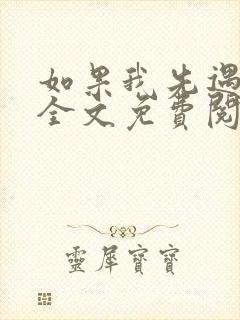 如果我先遇
全文免費閱
靈犀寶寶